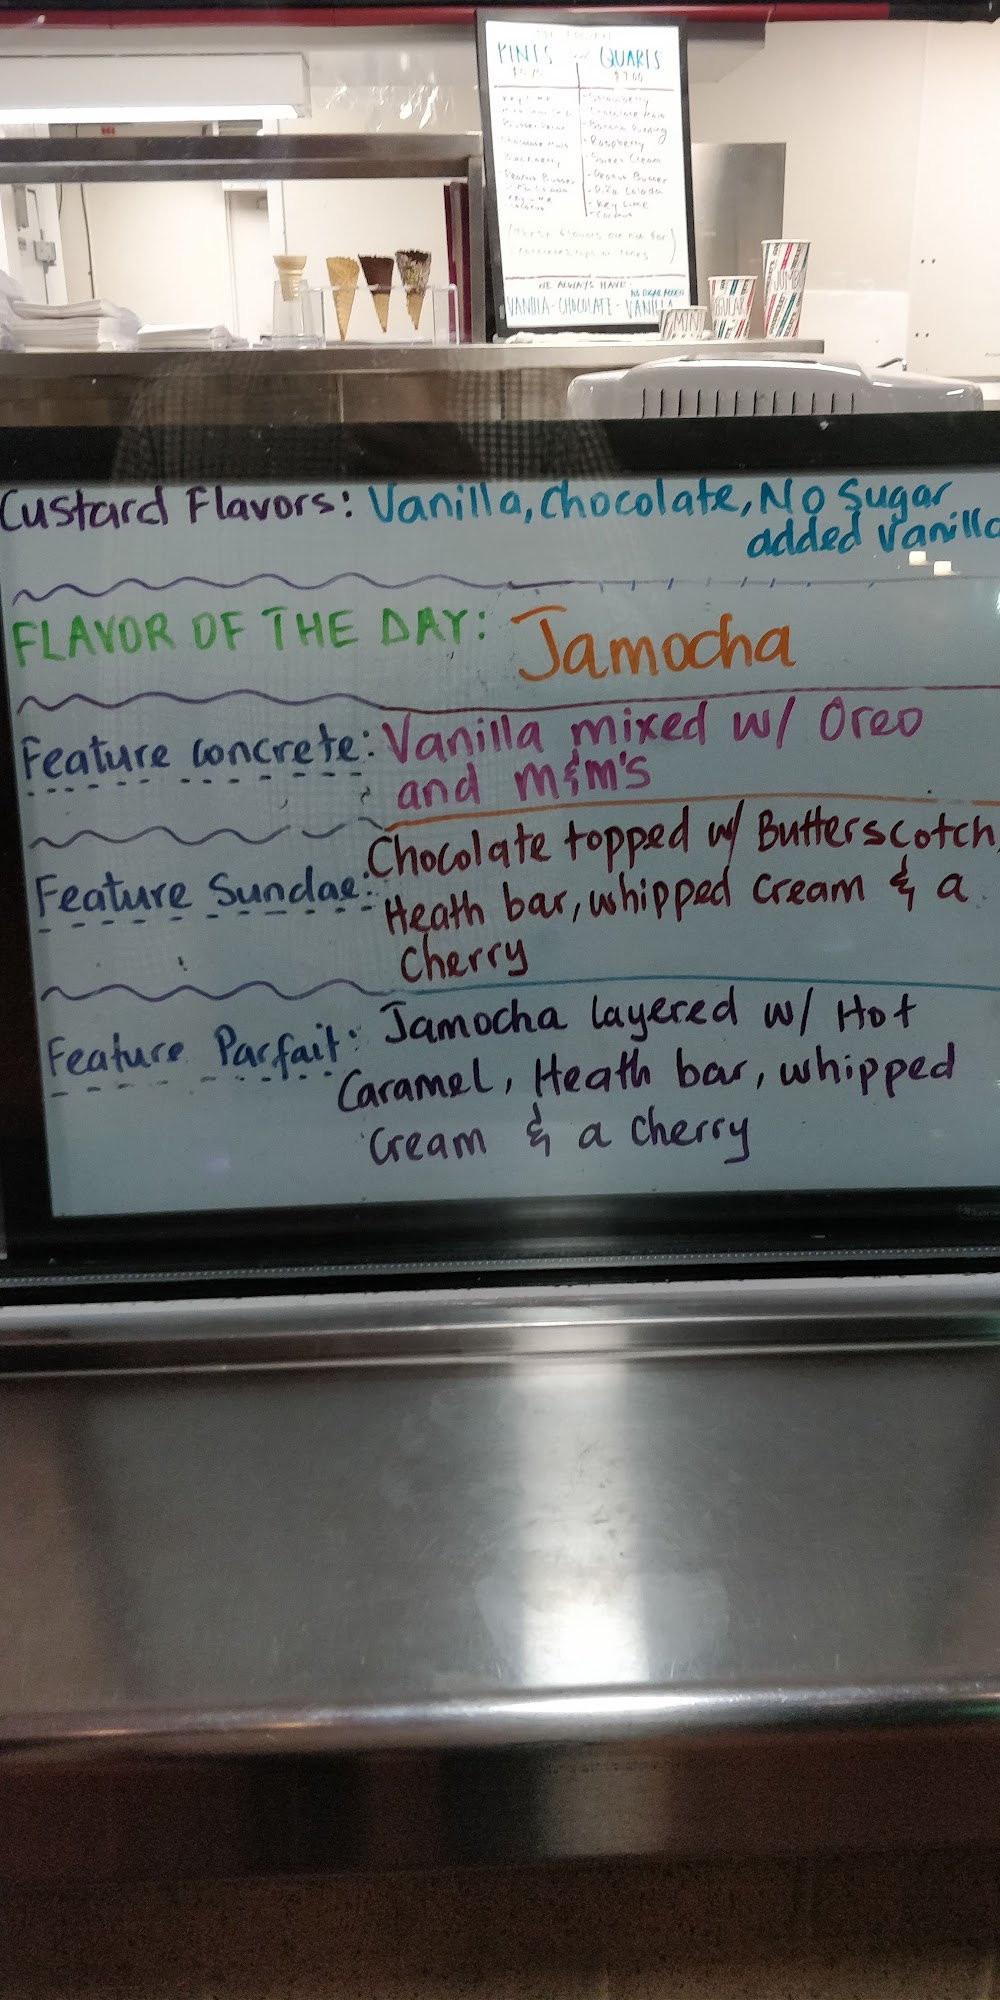 PINTS and QUARTS
$7.00
- Strawberry
- Chocolate Malt
- Banana Pudding
- Raspberry
- Sweet Cream
Peanut Butter
- Peanut Butter
- Piña Colada
Key Lime
- Key Lime
- Coconut
WE ALWAYS HAVE:
NO SUGAR ADDED
VANILLA - CHOCOLATE - VANILLA
MINI
REGULAR
JUMBO
Custard Flavors: Vanilla, Chocolate, No Sugar
added Vanilla
FLAVOR OF THE DAY: Jamocha
Feature Concrete: Vanilla mixed w/ Oreo
and M&M's
Feature Sundae: Chocolate topped w/ Butterscotch,
Heath bar, whipped Cream & a
Cherry
Feature Parfait: Jamocha layered w/ Hot
Caramel, Heath bar, whipped
Cream & a Cherry